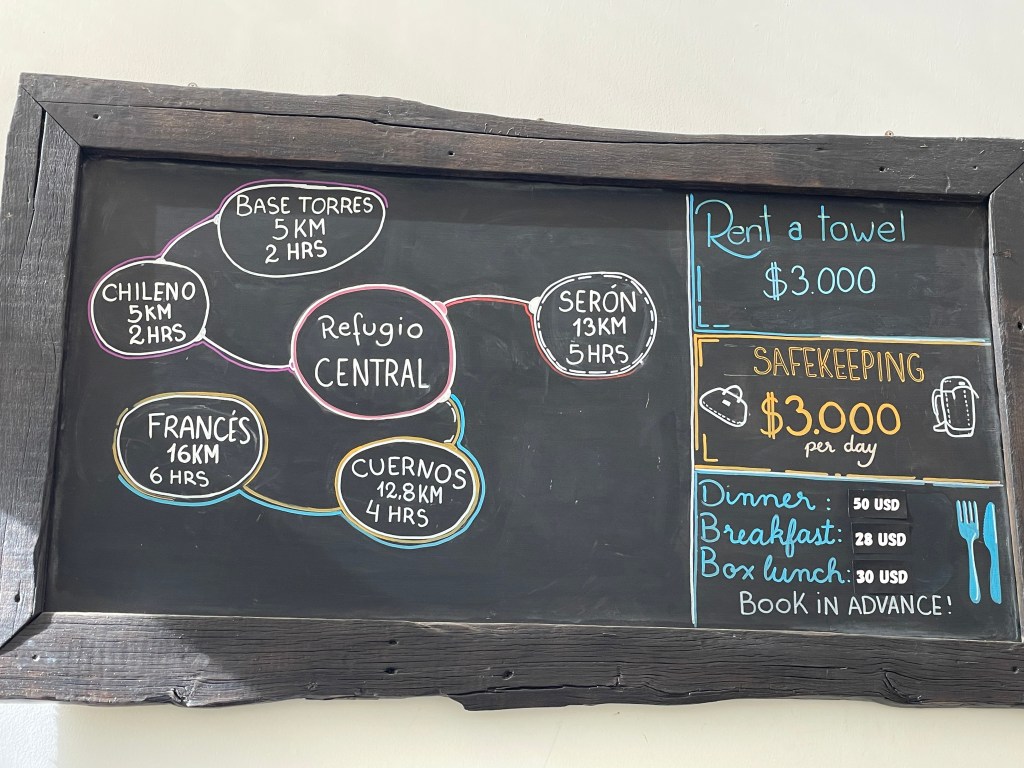 BASE TORRES
5 KM
2 HRS
CHILENO
5KM
2 HRS
Refugio
CENTRAL
SERÓN
13KM
5 HRS
FRANCÉS
16KM
6 HRS
CUERNOS
12,8KM
4 HRS
Rent a towel
$3.000
SAFEKEEPING
$3.000
per day
Dinner : 50 USD
Breakfast: 28 USD
Box lunch: 30 USD
BOOK IN ADVANCE!